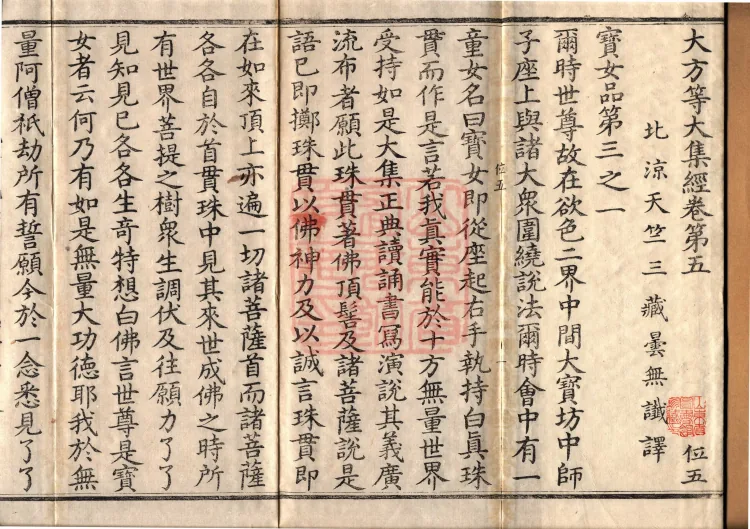 大方等大集經卷第五
北涼天竺三藏曇無讖譯
位五
寶女品第三之一
爾時世尊故在欲色二界中間大寶坊中師
子座上與諸大衆圍繞說法爾時會中有一
位五
童女名曰寶女即從座起右手執持白眞珠
貫而作是言若我眞實能於十方無量世界
受持如是大集正典讀誦書寫演說其義廣
流布者願此珠貫著佛頂髻及諸菩薩說是
語已即擲珠貫以佛神力及以誠言珠貫即
在如來頂上亦遍一切諸菩薩首而諸菩薩
各各自於首貫珠中見其來世成佛之時所
有世界菩提之樹衆生調伏及往願力了了
見知見已各各生奇特想白佛言世尊是寶
女者云何乃有如是無量大功德耶我於無
量阿僧祇劫所有誓願今於一念悉見了了